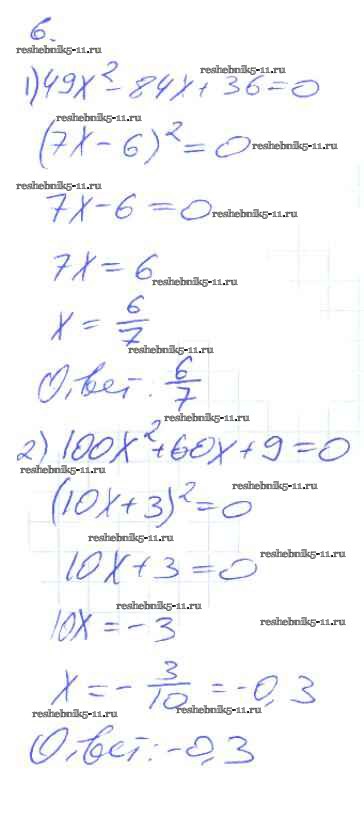 6.
reshebnik5-11.ru
1) 49x² - 84x + 36 = 0
reshebnik5-11.ru
reshebnik5-11.ru
reshebnik5-11.ru
(7x - 6)² = 0
reshebnik5-11.ru
reshebnik5-11.ru
7x - 6 = 0
reshebnik5-11.ru
7x = 6
reshebnik5-11.ru
x = 6/7
reshebnik5-11.ru
Ответ: 6/7
reshebnik5-11.ru
2) 100x² + 60x + 9 = 0
reshebnik5-11.ru
reshebnik5-11.ru
(10x + 3)² = 0
reshebnik5-11.ru
reshebnik5-11.ru
10x + 3 = 0
reshebnik5-11.ru
10x = -3
reshebnik5-11.ru
x = - 3/10 = -0,3
reshebnik5-11.ru
reshebnik5-11.ru
Ответ: -0,3
reshebnik5-11.ru